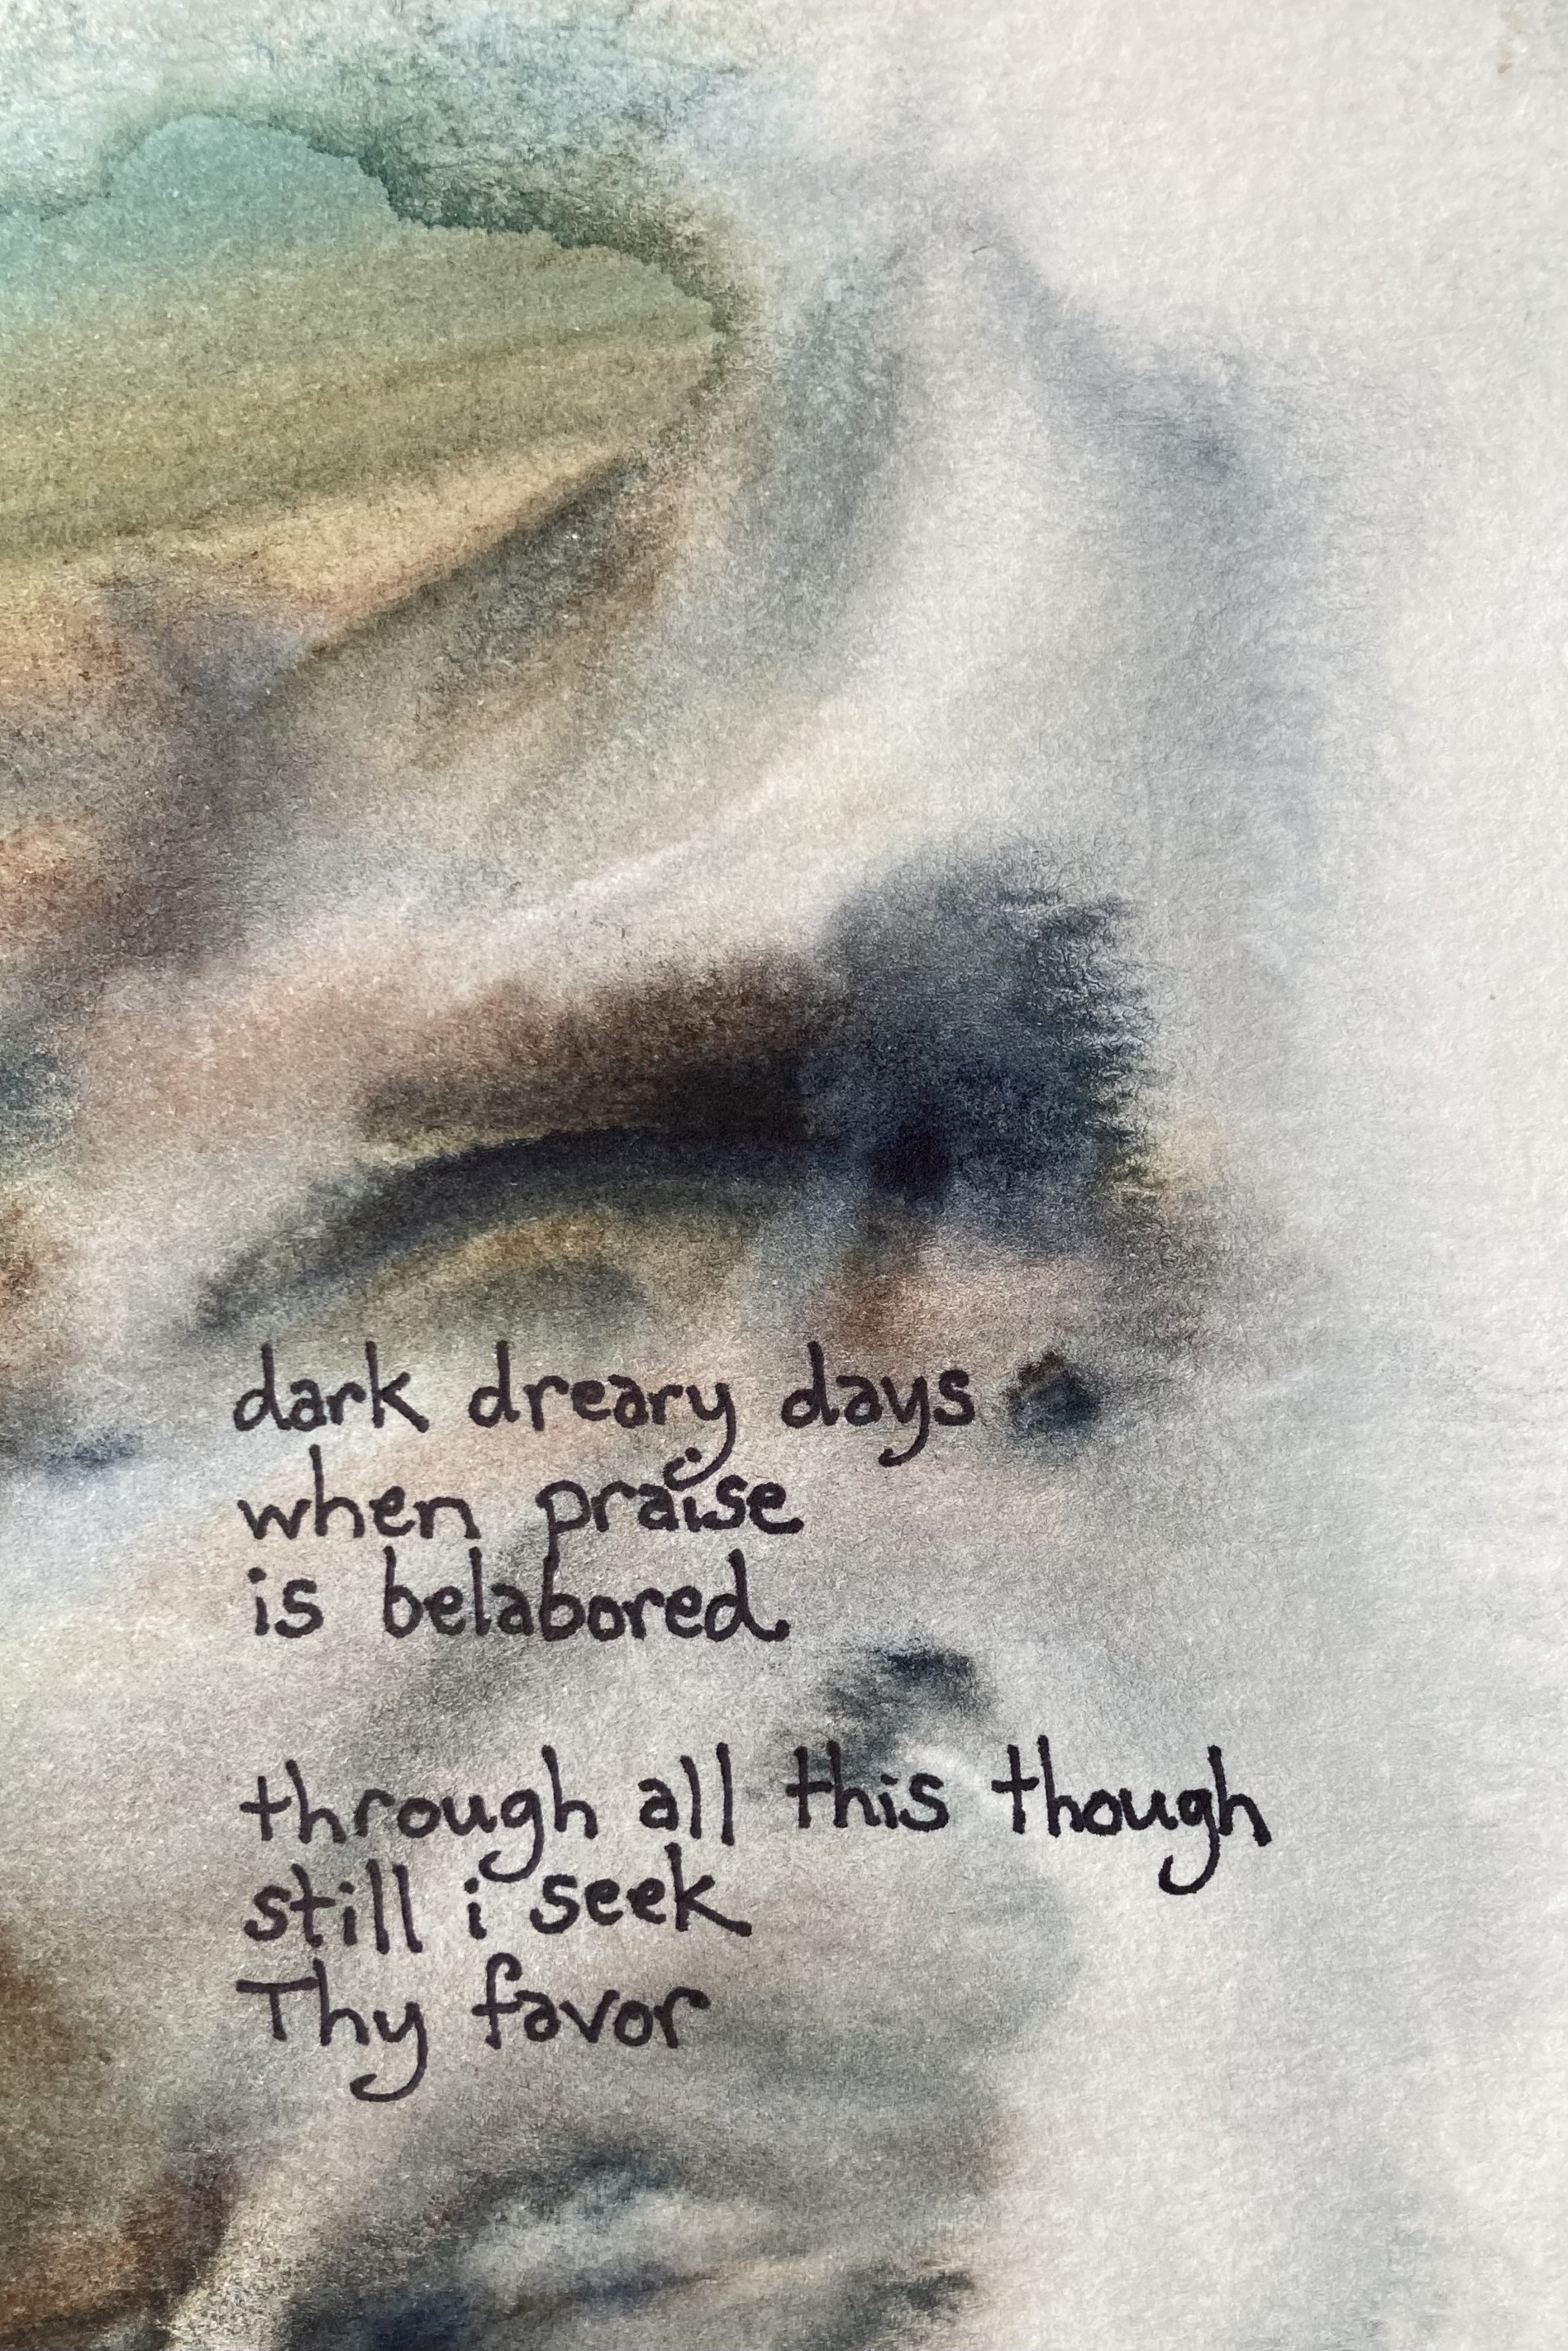 dark dreary days
when praise
is belabored
through all this though
still i seek
Thy favor